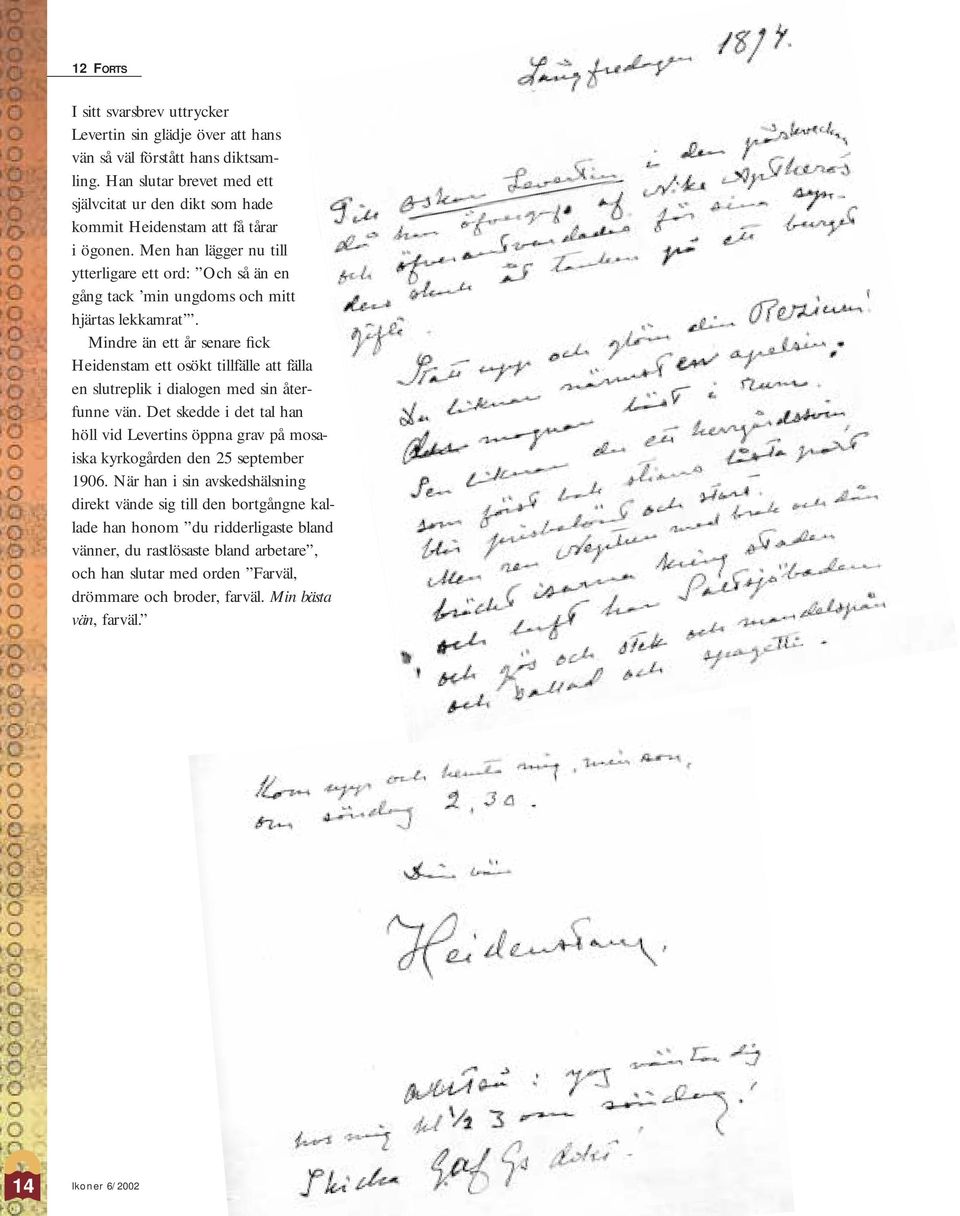 12 FORTS
I sitt svarsbrev uttrycker
Levertin sin glädje över att hans
vän så väl förstått hans diktsam-
ling. Han slutar brevet med ett
självcitat ur den dikt som hade
kommit Heidenstam att få tårar
i ögonen. Men han lägger nu till
ytterligare ett ord: ”Och så än en
gång tack ’min ungdoms och mitt
hjärtas lekkamrat’”.
Mindre än ett år senare fick
Heidenstam ett osökt tillfälle att fälla
en slutreplik i dialogen med sin åter-
funne vän. Det skedde i det tal han
höll vid Levertins öppna grav på mosa-
iska kyrkogården den 25 september
1906. När han i sin avskedshälsning
direkt vände sig till den bortgångne kal-
lade han honom ”du ridderligaste bland
vänner, du rastlösaste bland arbetare”,
och han slutar med orden ”Farväl,
drömmare och broder, farväl. Min bästa
vän, farväl.”
Långfredagen 1894.
Till Oskar Levertin i den påskvecka,
då han öfvergafs af Nike Apteros
och öfverantvardades för sina syn-
ders skull åt tanken på ett burget
gifte.
Statt upp och glöm din Rezinen!
Du liknar närmst en apelsin.
mognar bäst i rum.
Sen liknar du ett herrgårdssvin
som först bak stians låsta port
blir prisbelönt och stort.
Men ren Neptun med brak och dån
bräckt isarna kring staden
och luft har Saltsjöbaden
och gös och stek och mandelspån
och ballad och spagetti.
Kom upp och hemta mig, min son,
om söndag 2,30.
Din vän
Heidenstam.
Alltså: jag väntar dig
hos mig kl 1/2 3 om söndag!
Skicka Gaf Gs dikt!
14
Ikoner 6/2002